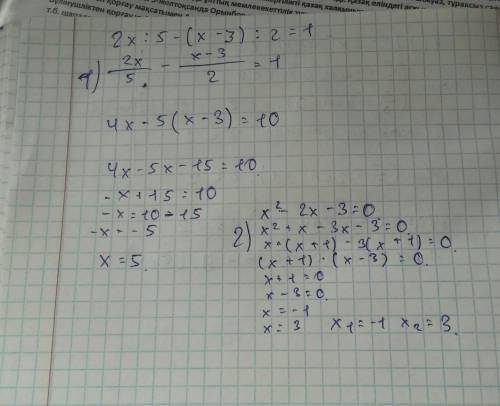 2x : 5 - (x - 3) : 2 = 1
1) 2x/5 - x-3/2 = 1
4x - 5(x - 3) = 10
4x - 5x - 15 = 10
-x + 15 = 10
-x = 10 - 15
-x = -5
x = 5
2) x² - 2x - 3 = 0
x² + x - 3x - 3 = 0
x·(x + 1) - 3(x + 1) = 0
(x + 1) · (x - 3) = 0
x + 1 = 0
x - 3 = 0
x = -1
x = 3 x1 = -1 x2 = 3